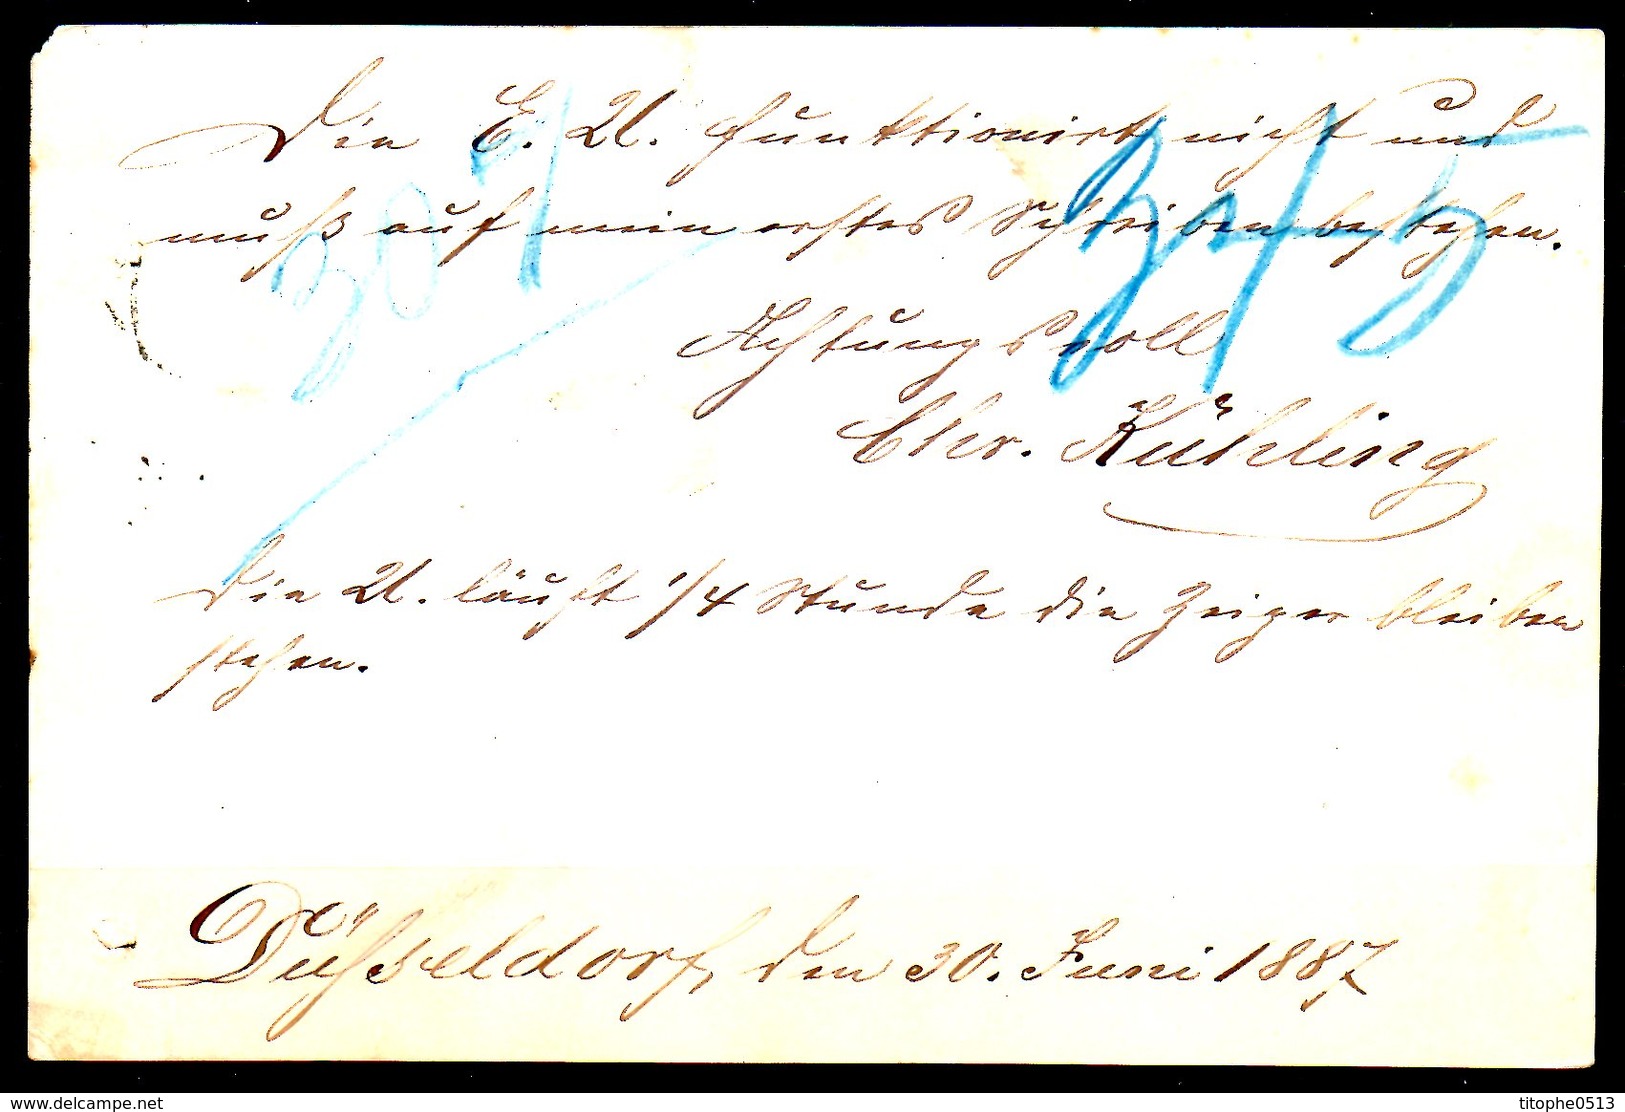 Die E. U. funktionirt nicht und
muß auf mein erstes Schreiben bestehen.
Achtungsvoll
Chr. Kühling
Die U. läuft 1/4 Stunde die Zeiger bleiben
stehen.
Düsseldorf, den 30. Juni 1887
delcampe.net
titophe0513